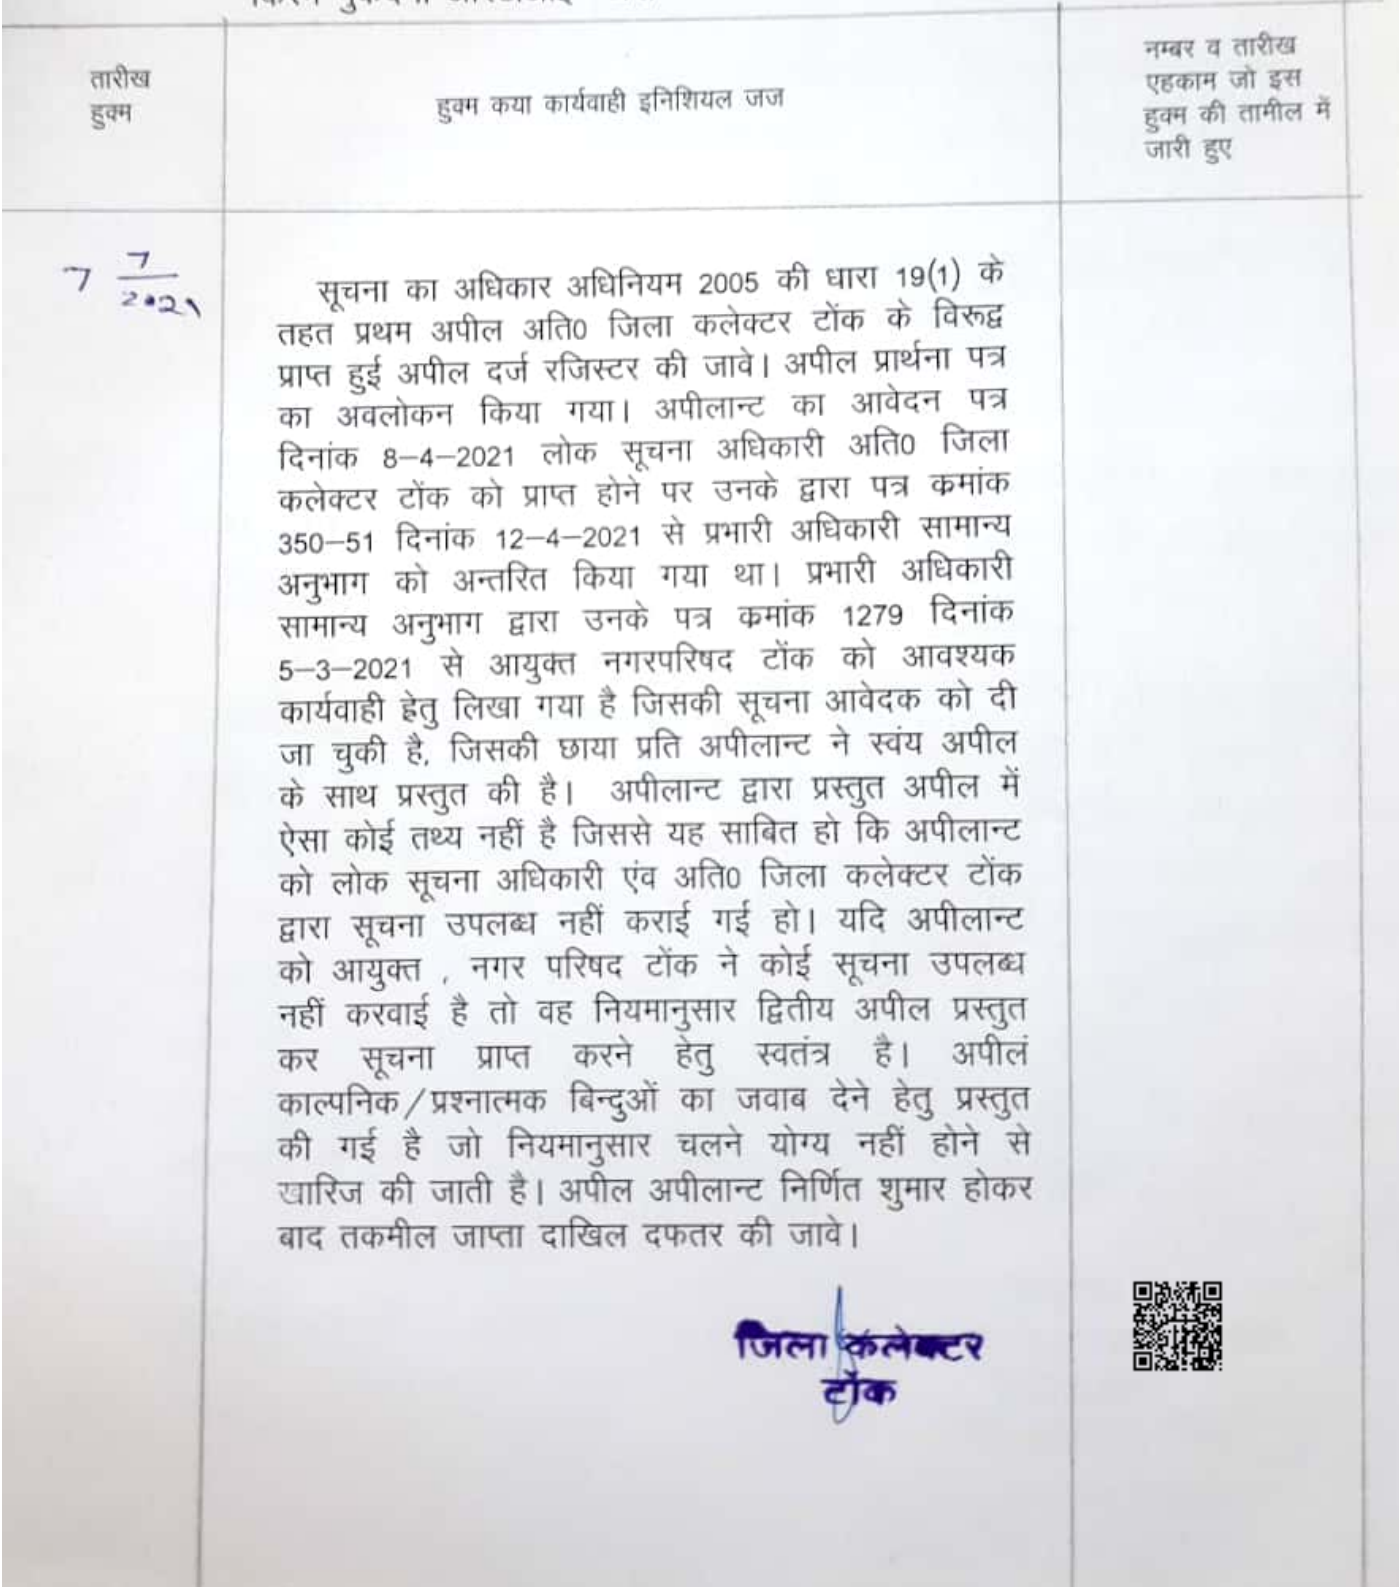 तारीख
हुक्म
हुक्म कया कार्यवाही इनिशियल जज
नम्बर व तारीख
एहकाम जो इस
हुक्म की तामील में
जारी हुए
7 7/2021
सूचना का अधिकार अधिनियम 2005 की धारा 19(1) के
तहत प्रथम अपील अति0 जिला कलेक्टर टोंक के विरूद्व
प्राप्त हुई अपील दर्ज रजिस्टर की जावे। अपील प्रार्थना पत्र
का अवलोकन किया गया। अपीलान्ट का आवेदन पत्र
दिनांक 8–4–2021 लोक सूचना अधिकारी अति0 जिला
कलेक्टर टोंक को प्राप्त होने पर उनके द्वारा पत्र कमांक
350–51 दिनांक 12–4–2021 से प्रभारी अधिकारी सामान्य
अनुभाग को अन्तरित किया गया था। प्रभारी अधिकारी
सामान्य अनुभाग द्वारा उनके पत्र कमांक 1279 दिनांक
5–3–2021 से आयुक्त नगरपरिषद टोंक को आवश्यक
कार्यवाही हेतु लिखा गया है जिसकी सूचना आवेदक को दी
जा चुकी है, जिसकी छाया प्रति अपीलान्ट ने स्वंय अपील
के साथ प्रस्तुत की है। अपीलान्ट द्वारा प्रस्तुत अपील में
ऐसा कोई तथ्य नहीं है जिससे यह साबित हो कि अपीलान्ट
को लोक सूचना अधिकारी एंव अति0 जिला कलेक्टर टोंक
द्वारा सूचना उपलब्ध नहीं कराई गई हो। यदि अपीलान्ट
को आयुक्त , नगर परिषद टोंक ने कोई सूचना उपलब्ध
नहीं करवाई है तो वह नियमानुसार द्वितीय अपील प्रस्तुत
कर सूचना प्राप्त करने हेतु स्वतंत्र है। अपीलं
काल्पनिक/प्रश्नात्मक बिन्दुओं का जवाब देने हेतु प्रस्तुत
की गई है जो नियमानुसार चलने योग्य नहीं होने से
खारिज की जाती है। अपील अपीलान्ट निर्णित शुमार होकर
बाद तकमील जाप्ता दाखिल दफतर की जावे।
जिला कलेक्टर
टोंक